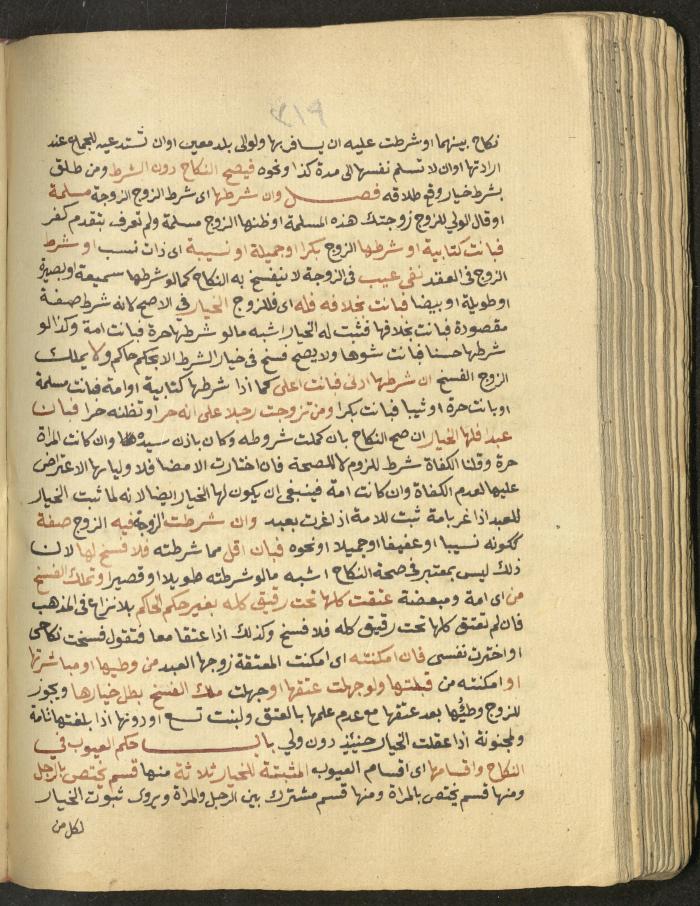 ٣١٩
نكاح بينهما او شرطت عليه ان يسافر بها ولو الى بلد معين او ان تستدعيه للجماع عند
ارادتها او ان لا تسلم نفسها الى مدة كذا ونحوه فيصح النكاح دون الشرط ومن طلق
بشرط خيار وقع طلاقه فصل وان شرطها اى شرط الزوج الزوجة مسلمة
او قال الولي للزوج زوجتك هذه المسلمة او ظنها الزوج مسلمة ولم تعرف بتقدم كفر
فبانت كتابية او شرطها الزوج بكرا او جميلة او نسيبة اى ذات نسب او شرط
الزوج فى العقد نفى عيب فى الزوجة لا ينفسخ به النكاح كما لو شرطها سميعة او بصيرة
او طويلة او بيضا فبانت بخلافه فله اى فللزوج الخيار في الاصح لانه شرط صفة
مقصودة فبانت بخلافها فثبت له الخيار اشبه ما لو شرطها حرة فبانت امة وكذا لو
شرطها حسنا فبانت شوها ولا يصح فسخ فى خيار الشرط الا بحكم حاكم ولا يملك
الزوج الفسخ ان شرطها ادنى فبانت اعلى كما اذا شرطها كتابية او امة فبانت مسلمة
او بانت حرة او ثيبا فبانت بكرا ومن تزوجت رجلا على انه حر او تظنه حرا فبان
عبدا فلها الخيار ان صح النكاح بان كملت شروطه وكان باذن سيده وان كانت المراة
حرة وقلنا الكفاة شرط للزوم لا للصحة فان اختارت الامضا فلاوليا بها الاعتراض
عليها لعدم الكفاة وان كانت امة فينبغى ان يكون لها الخيار ايضا لانه لما ثبت الخيار
للعبد اذا غر بامة ثبت للامة اذا غرت بعبد وان شرطت الزوجة فيه الزوج صفة
ككونه نسيبا او عفيفا او جميلا او نحوه فبان اقل مما شرطته فلا فسخ لها لان
ذلك ليس بمعتبر فى صحة النكاح اشبه ما لو شرطته طويلا او قصيرا وتملك الفسخ
من اى امة ومبعضة عتقت كلها تحت رقيق كله بغير حكم الحاكم بلا نزاع فى المذهب
فان لم تعتق كلها تحت رقيق كله فلا فسخ وكذلك اذا عتقا معا فتقول فسخت نكاحى
او اخترت نفسى فان امكنته اى امكنت المعتقة زوجها العبد من وطيها او مباشرتها
او امكنته من قبلتها ولو جهلت عتقها او جهلت ملك الفسخ بطل خيارها ويجوز
للزوج وطؤها بعد عتقها مع عدم علمها بالعتق ولبنت تسع او دونها اذا بلغتها تامة
ولمجنونة اذا عقلت الخيار حينئذ دون ولي باب حكم العيوب في
النكاح واقسامها اى اقسام العيوب المثبتة للخيار ثلاثة منها قسم يختص بالرجل
ومنها قسم يختص بالمراة ومنها قسم مشترك بين الرجل والمراة ويروى ثبوت الخيار
لكل من